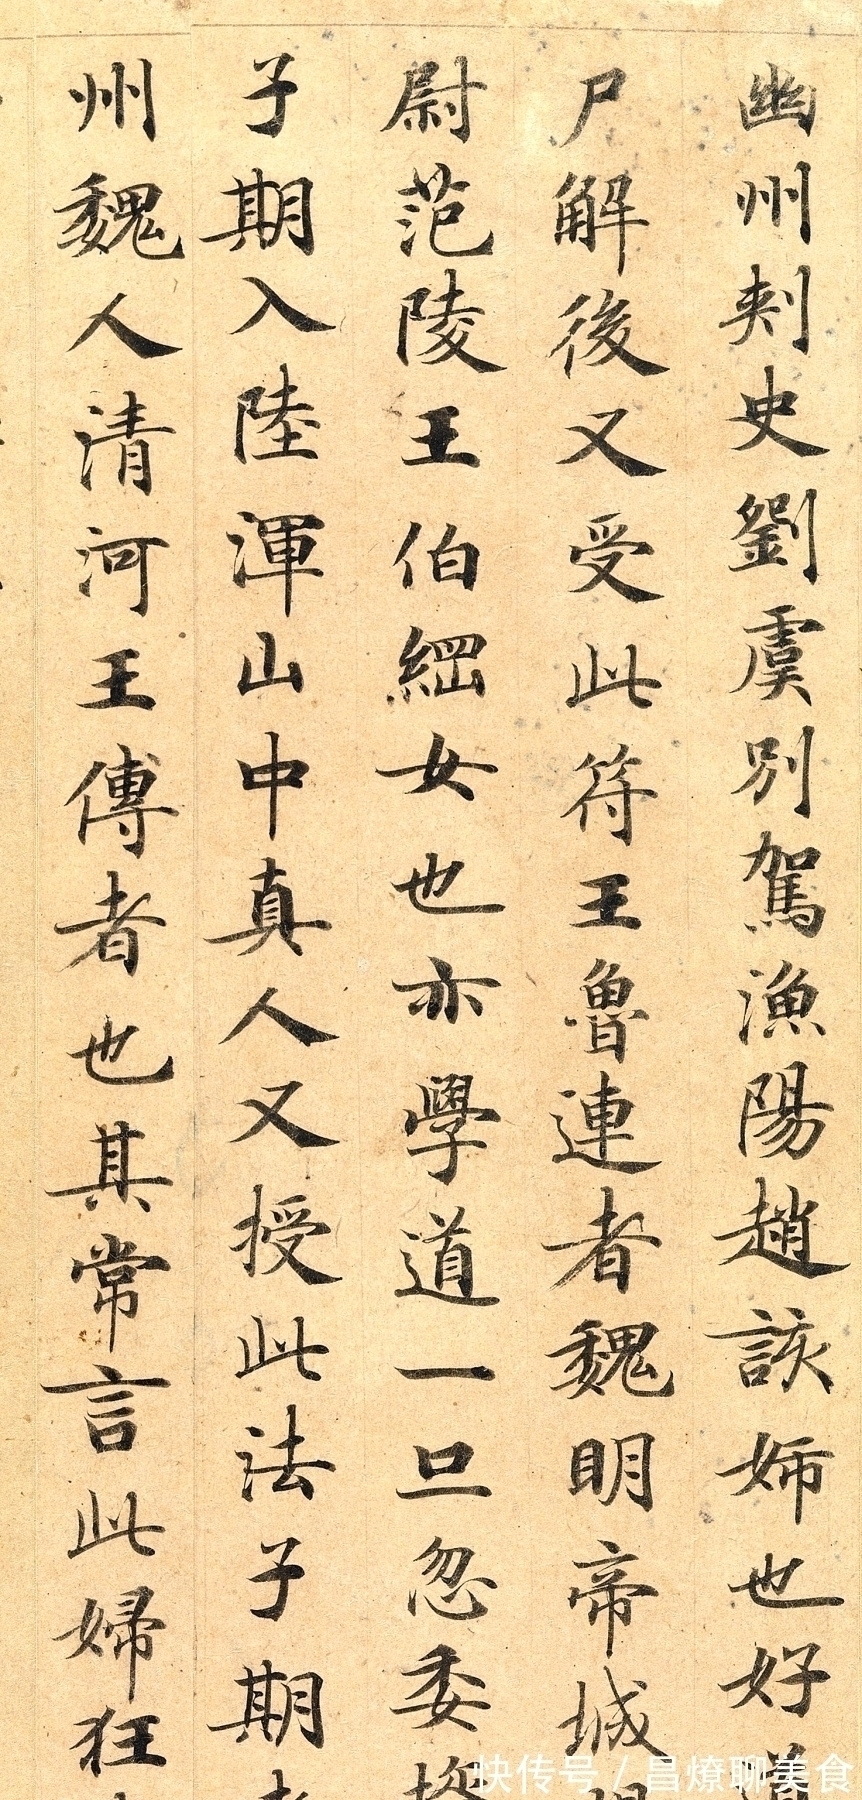 幽州刾史劉虞別駕漁陽趙該姉也好道
尸解後又受此符王魯連者魏明帝城
尉范陵王伯綱女也亦學道一旦忽委
子期入陸渾山中真人又授此法子期
州魏人清河王傅者也其常言此婦狂
快传号/昌燎聊美食